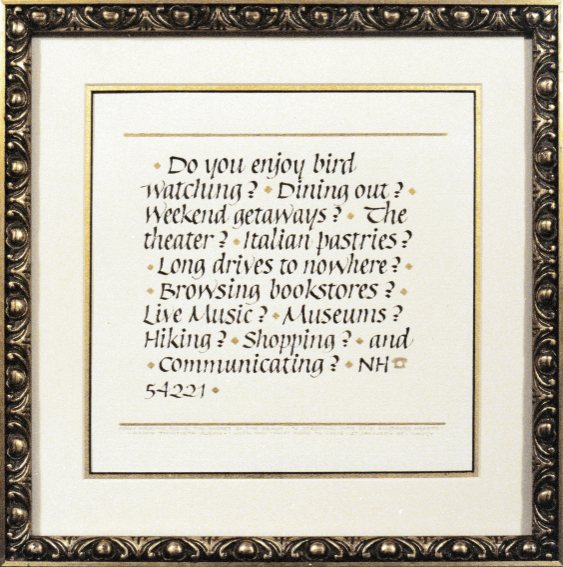 • Do you enjoy bird
watching? • Dining out? •
Weekend getaways? • The
theater? • Italian pastries?
• Long drives to nowhere? •
• Browsing bookstores? •
Live Music? • Museums?
Hiking? • Shopping? • and
• Communicating? • NH ☎
54221 •